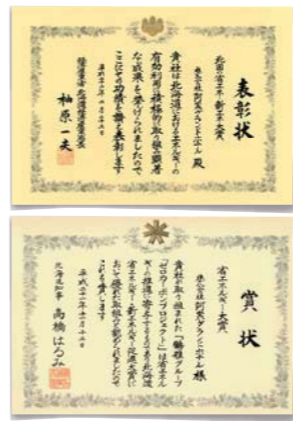 表彰状
北国の省エネ・新エネ大賞
株式会社阿寒グランドホテル 殿
貴社は北海道におけるエネルギーの
有効利用に積極的に取り組み顕著
な成果を挙げられましたので
ここにその功績を讃え表彰します
経済産業省北海道経済産業局長
柚原一夫
賞状
省エネルギー大賞
株式会社阿寒グランドホテル 様
貴社が取り組まれた「鶴雅グループ
「ゼロカーボンプロジェクト」は省エネル
ギーの推進に寄与するものであり北海道
省エネルギー・新エネルギー促進大賞に
おいて優れた取組みと認められましたので
これを賞します
北海道知事 高橋はるみ